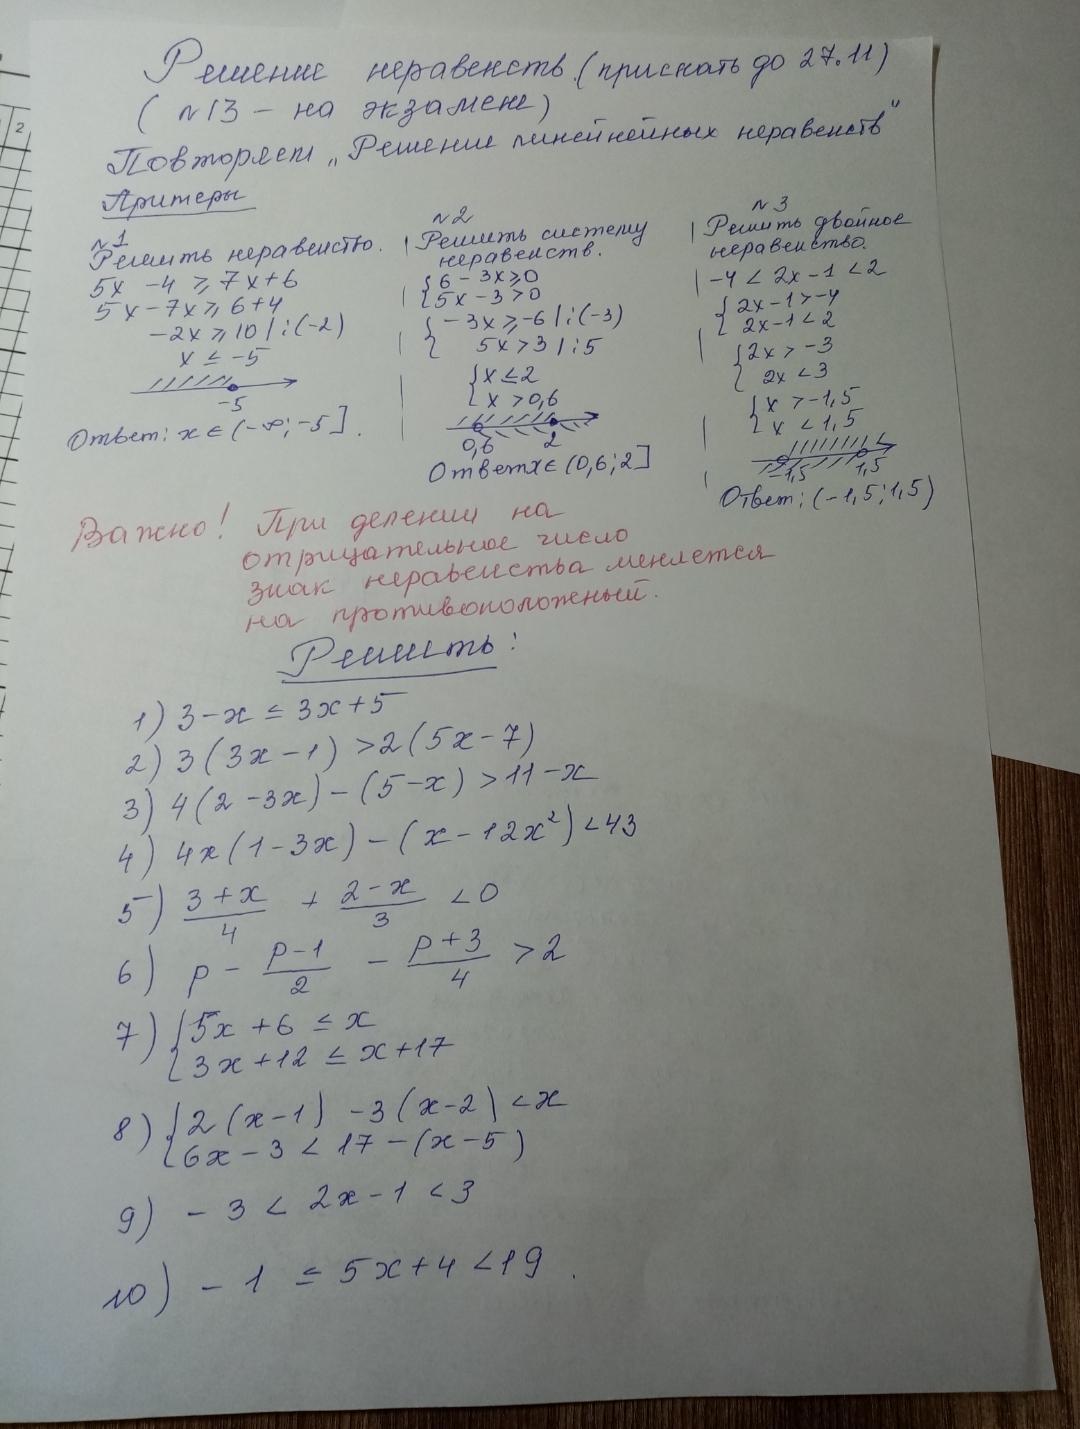 Решение неравенств. (прислать до 27.11)
( №13 – на экзамене)
Повторяем „Решение линейнейных неравенств"
Примеры
№1
Решить неравенство.
5x - 4 ⩾ 7x + 6
5x - 7x ⩾ 6 + 4
-2x ⩾ 10 | : (-2)
x ≤ -5
-5
Ответ: x ∈ (-∞; -5].
№2
Решить систему
неравенств.
{ 6 - 3x ⩾ 0
{ 5x - 3 > 0
{ -3x ⩾ -6 | : (-3)
{ 5x > 3 | : 5
{ x ≤ 2
{ x > 0,6
0,6 2
Ответ x ∈ (0,6; 2]
№3
Решить двойное
неравенство.
-4 < 2x - 1 < 2
{ 2x - 1 > -4
{ 2x - 1 < 2
{ 2x > -3
{ 2x < 3
{ x > -1,5
{ x < 1,5
-1,5 1,5
Ответ: (-1,5; 1,5)
Важно! При делении на
отрицательное число
знак неравенства меняется
на противоположный.
Решить:
1) 3 - x ≤ 3x + 5
2) 3(3x - 1) > 2(5x - 7)
3) 4(2 - 3x) - (5 - x) > 11 - x
4) 4x(1 - 3x) - (x - 12x²) < 43
5) (3 + x)/4 + (2 - x)/3 < 0
6) p - (p - 1)/2 - (p + 3)/4 > 2
7) { 5x + 6 ≤ x
{ 3x + 12 ≤ x + 17
8) { 2(x - 1) - 3(x - 2) < x
{ 6x - 3 < 17 - (x - 5)
9) - 3 < 2x - 1 < 3
10) - 1 ≤ 5x + 4 < 19.